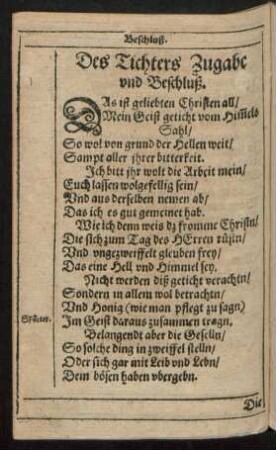 Beschluß.
Des Tichters Zugabe
vnd Beschluß.
DAs ist geliebten Christen all/
Mein Geist geticht vom Him̃els
Sahl/
So wol von grund der Hellen weit/
Sampt aller jhrer bitterkeit.
Ich bitt jhr wolt die Arbeit mein/
Euch lassen wolgefellig sein/
Vnd aus derselben nemen ab/
Das ich es gut gemeinet hab.
Wie ich denn weis dz fromme Christn/
Die sich zum Tag des HErren rüstn/
Vnd vngezweiffelt gleuben frey/
Das eine Hell vnd Himmel sey.
Nicht werden diß geticht verachtn/
Sondern in allem wol betrachtn/
Vnd Honig (wie man pflegt zu sagn)
Im Geist daraus zusammen tragn.
Belangendt aber die Geselln/
So solche ding in zweiffel stelln/
Oder sich gar mit Leib vnd Lebn/
Dem bösen haben vbergebn.
Die